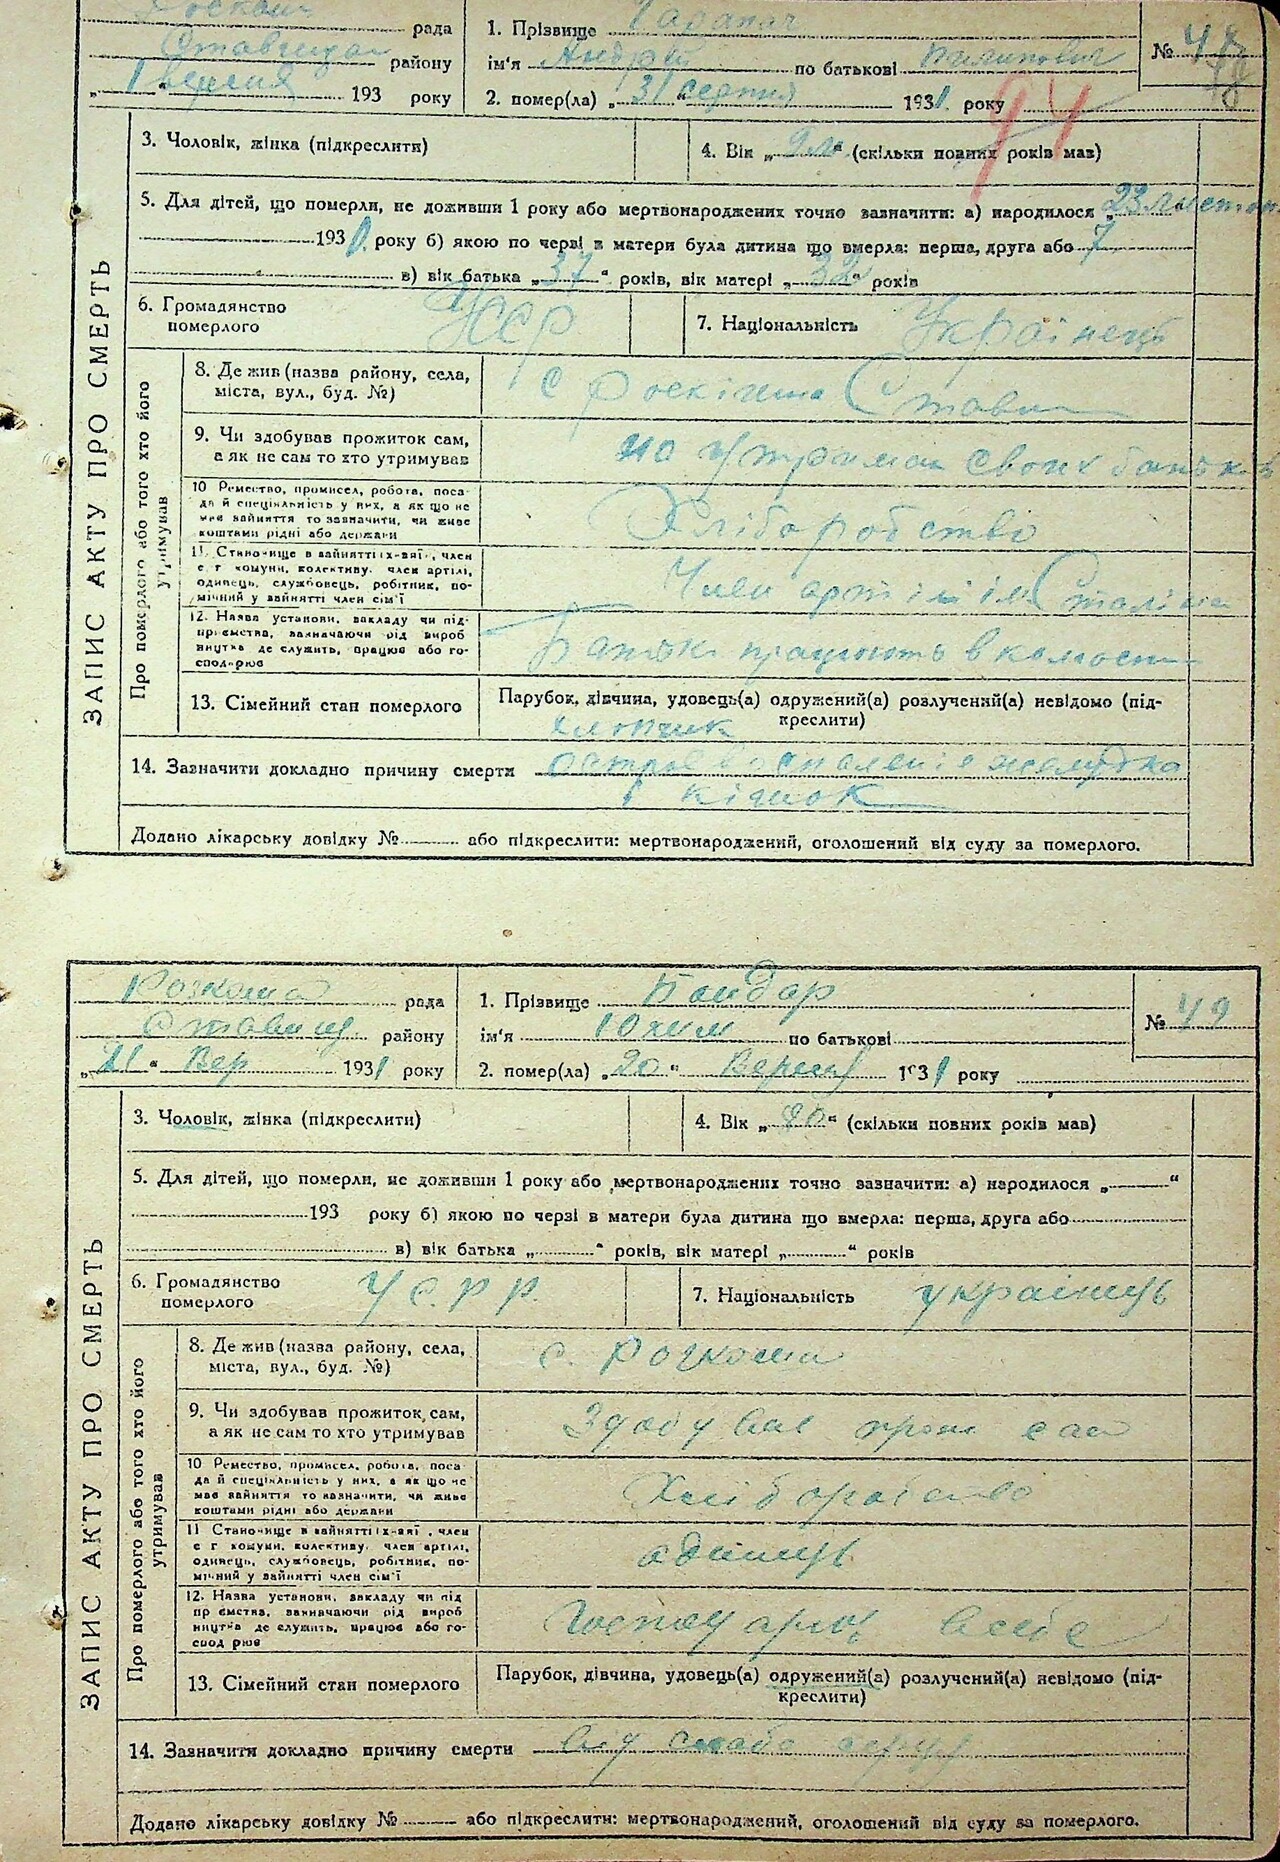 рада
Ставищан району
1 вересня 193 року
1. Прізвище
ім'я Андрій по батькові Пилипович
2. помер(ла) „31“ серпня 1931 року
№ 48
94
ЗАПИС АКТУ ПРО СМЕРТЬ
3. Чоловік, жінка (підкреслити)
4. Вік „9 м.“ (скільки повних років мав)
5. Для дітей, що померли, не доживши 1 року або мертвонароджених точно зазначити: а) народилося „23 листоп
1930 року б) якою по черві в матери була дитина що вмерла: перша, друга або 7
в) вік батька „37“ років, вік матері „32“ років
6. Громадянство
померлого
УССР
7. Національність Українець
Про померлого або того хто його
утримував
8. Де жив (назва району, села,
міста, вул., буд. №)
с
9. Чи здобував прожиток сам,
а як не сам то хто утримував
на утриман своїх батьків
10 Ремество, промисел, робота, поса-
да й спеціяльність у них, а як що не
має зайняття то зазначити, чи живе
коштами рідні або держави
Хліборобство
11. Становище в зайнятті їх-вяї, член
с г комуни, колективу, член артілі,
одинець, службовець, робітник, по-
мічний у зайнятті член сім'ї
Член артіли ім Сталіна
12. Назва установи, закладу чи під-
приємства, зазначаючи рід вироб
ництва де служить, працює або го-
сподарює
Батьки працюють в колгосп
13. Сімейний стан померлого
Парубок, дівчина, удовець(а) одружений(а) розлучений(а) невідомо (під-
креслити)
хлопчик
14. Зазначити докладно причину смерти остроє воспаленіє желудка
і кішок
Додано лікарську довідку № або підкреслити: мертвонароджений, оголошений від суду за померлого.
Розкоша рада
Ставищ. району
„21“ Вер 1931 року
1. Прізвище Бондар
ім'я Юхим по батькові
2. помер(ла) „20“ Верес 1931 року
№ 49
ЗАПИС АКТУ ПРО СМЕРТЬ
3. Чоловік, жінка (підкреслити)
4. Вік (скільки повних років мав)
5. Для дітей, що померли, не доживши 1 року або мертвонароджених точно зазначити: а) народилося „ “
193 року б) якою по черзі в матери була дитина що вмерла: перша, друга або
в) вік батька „ “ років, вік матері „ “ років
6. Громадянство
померлого
У С. Р Р.
7. Національність українець
Про померлого або того хто його
утримував
8. Де жив (назва району, села,
міста, вул., буд. №)
с. Розкоша
9. Чи здобував прожиток сам,
а як не сам то хто утримував
Здобував прож сам
10 Ремество, промисел, робота, поса-
да й спеціяльність у них, а як що не
має зайняття то зазначити, чи живе
коштами рідні або держави
Хліборобство
11 Становище в зайнятті їх-вяї, член
с г комуни, колективу, член артілі,
одинець, службовець, робітник, по-
мічний у зайнятті член сім'ї
одинець
12. Назва установи, закладу чи під
приємства, зазначаючи рід вироб
ництва де служить, працює або го-
спод рює
в себе
13. Сімейний стан померлого
Парубок, дівчина, удовець(а) одружений(а) розлучений(а) невідомо (під-
креслити)
14. Зазначити докладно причину смерти від слабо серця
Додано лікарську довідку № або підкреслити: мертвонароджений, оголошений від суду за померлого.